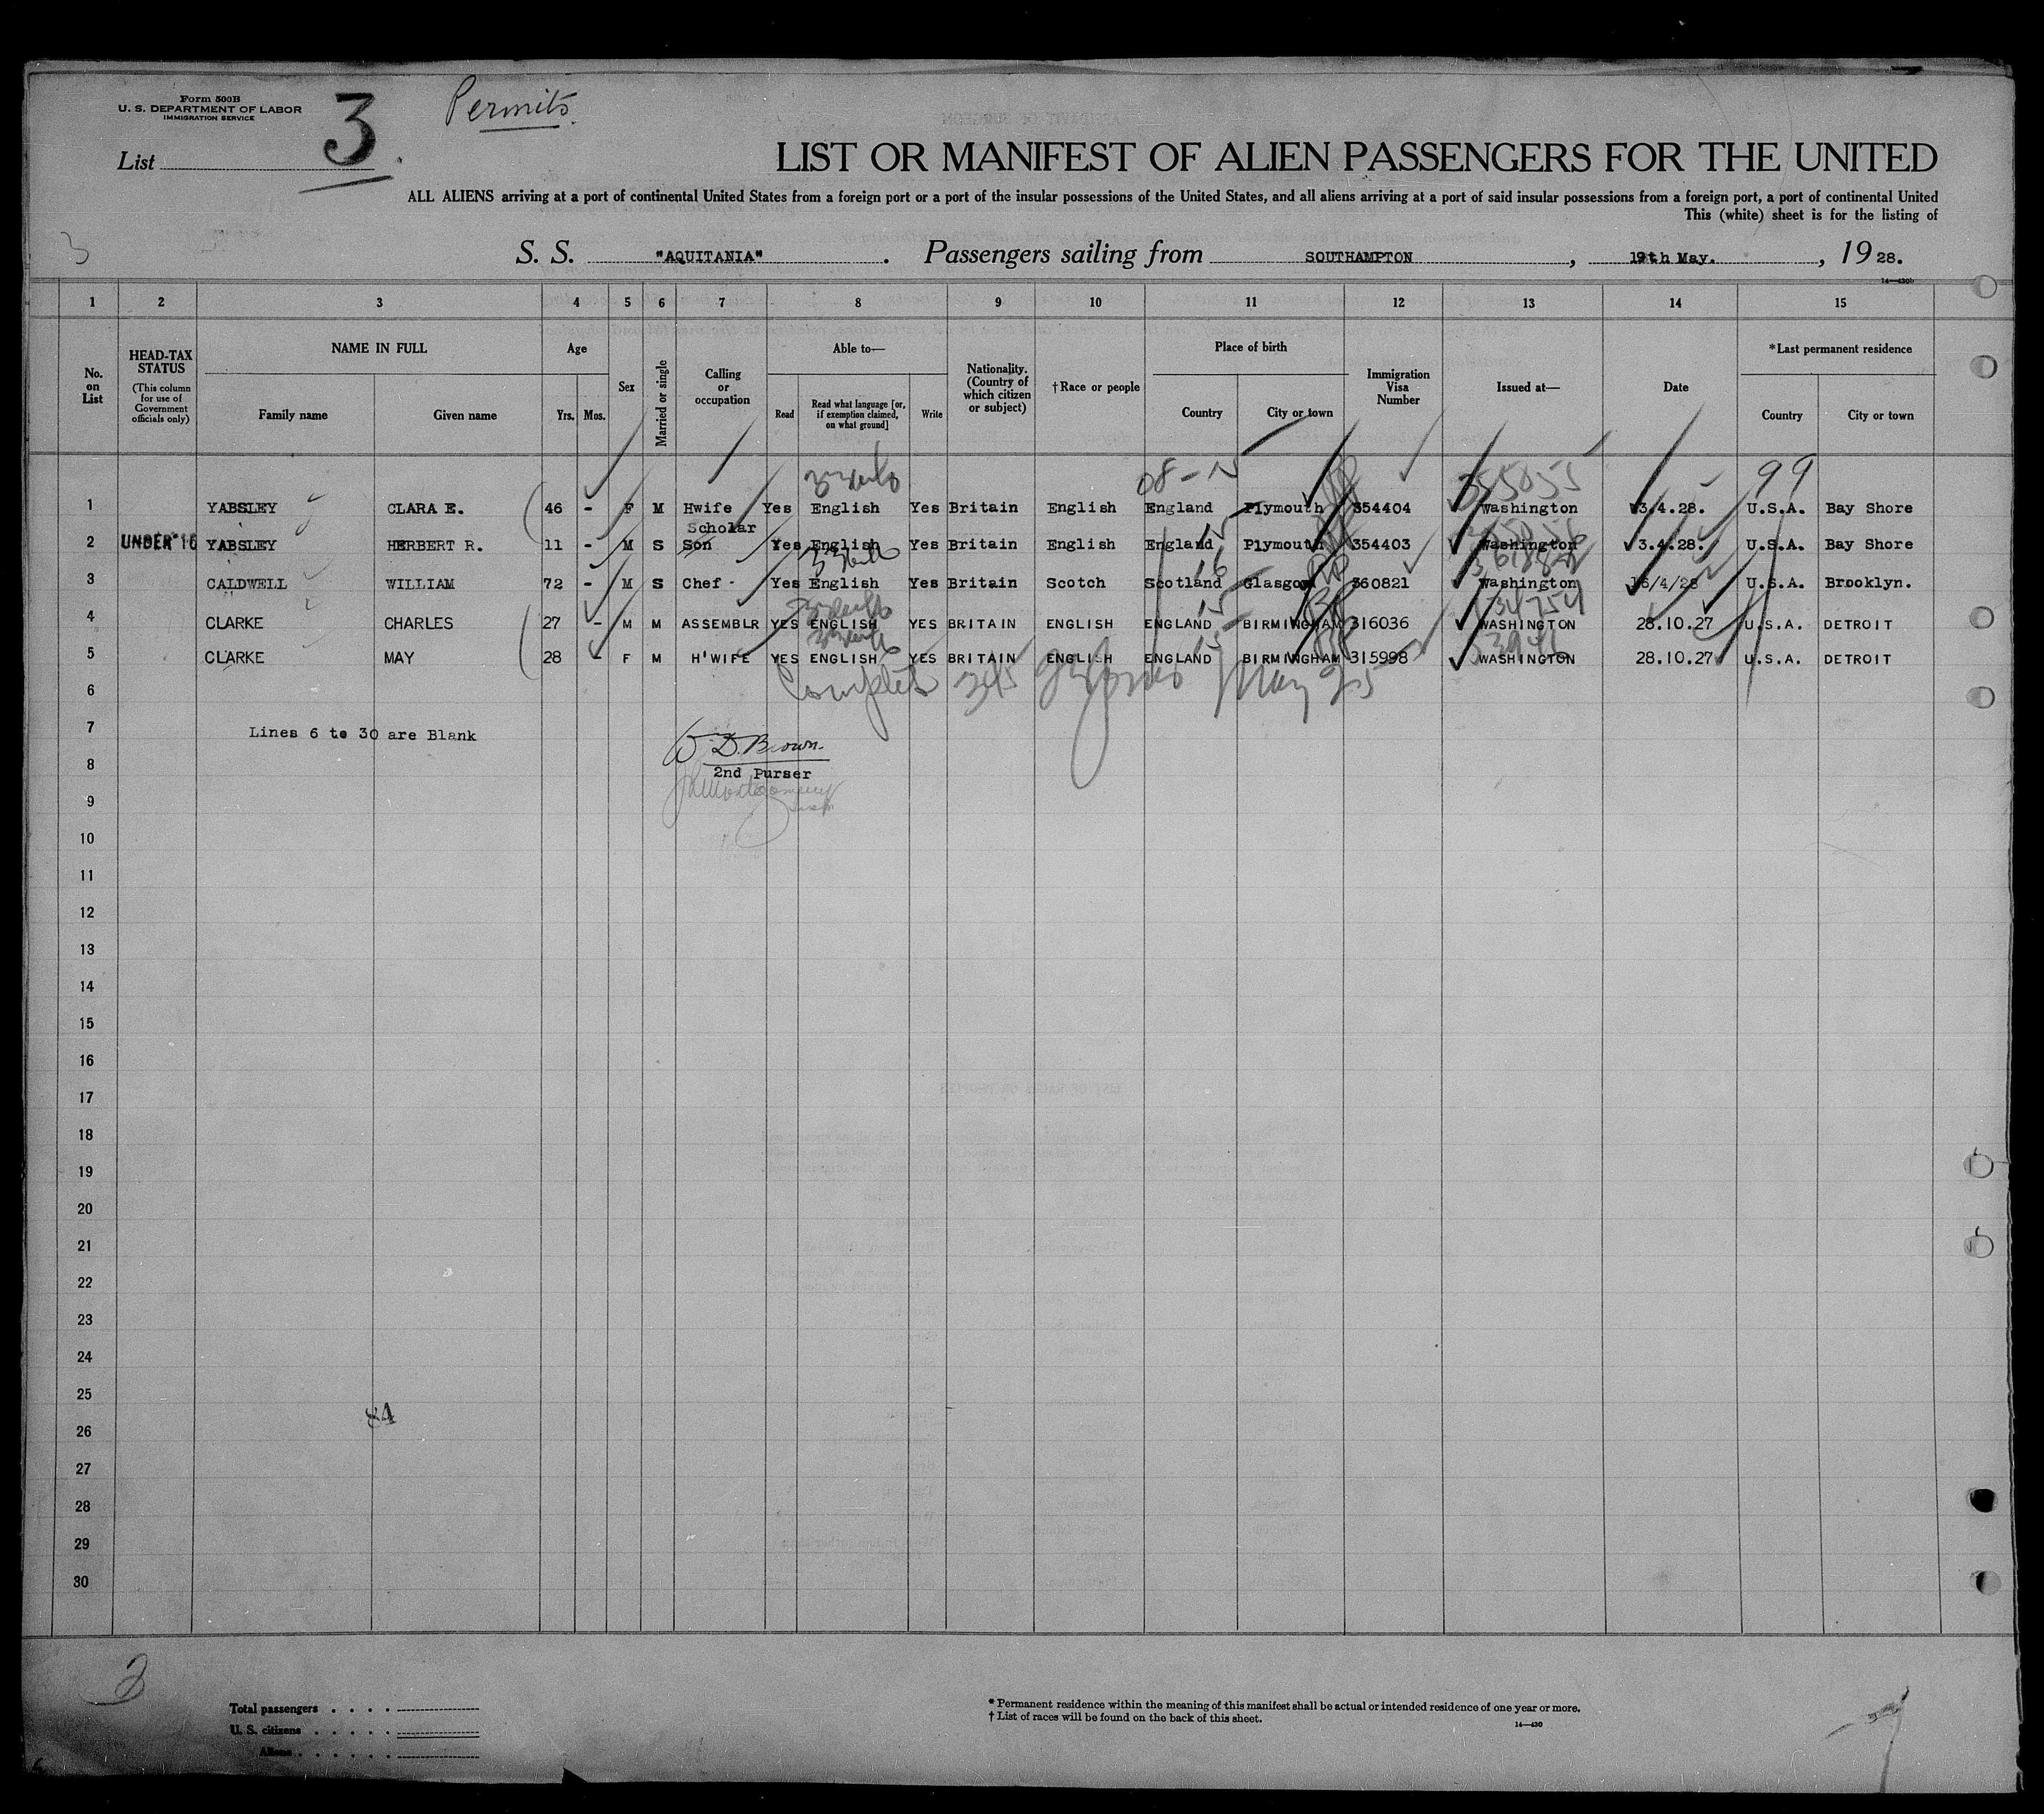 Form 500B
U. S. DEPARTMENT OF LABOR
IMMIGRATION SERVICE
List 3.
Permits.
LIST OR MANIFEST OF ALIEN PASSENGERS FOR THE UNITED
ALL ALIENS arriving at a port of continental United States from a foreign port or a port of the insular possessions of the United States, and all aliens arriving at a port of said insular possessions from a foreign port, a port of continental United
This (white) sheet is for the listing of
3
S. S. "AQUITANIA". Passengers sailing from SOUTHAMPTON, 19th May., 1928.
14—430b
1 2 3 4 5 6 7 8 9 10 11 12 13 14 15
No. on List
HEAD-TAX STATUS (This column for use of Government officials only)
NAME IN FULL Family name Given name
Age Yrs. Mos.
Sex
Married or single
Calling or occupation
Able to— Read Read what language [or, if exemption claimed, on what ground] Write
Nationality. (Country of which citizen or subject)
†Race or people
Place of birth Country City or town
Immigration Visa Number
Issued at—
Date
*Last permanent residence Country City or town
08 - 355055 99
1 YABSLEY CLARA E. 46 - F M Hwife Yes English Yes Britain English England Plymouth 354404 Washington 3.4.28. U.S.A. Bay Shore
Scholar
2 UNDER 16 YABSLEY HERBERT R. 11 - M S Son Yes English Yes Britain English England Plymouth 354403 Washington 3.4.28. U.S.A. Bay Shore
16
3 CALDWELL WILLIAM 72 - M S Chef - Yes English Yes Britain Scotch Scotland Glasgow 360821 Washington 16/4/28 U.S.A. Brooklyn.
15
4 CLARKE CHARLES 27 - M M ASSEMBLR YES ENGLISH YES BRITAIN ENGLISH ENGLAND BIRMINGHAM 316036 WASHINGTON 28.10.27 U.S.A. DETROIT
15
5 CLARKE MAY 28 - F M H'WIFE YES ENGLISH YES BRITAIN ENGLISH ENGLAND BIRMINGHAM 315998 WASHINGTON 28.10.27 U.S.A. DETROIT
6 Complete May 25
7 Lines 6 to 30 are Blank
W. D. Brown.
8 2nd Purser
9
10
11
12
13
14
15
16
17
18
19
20
21
22
23
24
25
84
26
27
28
29
30
Total passengers
U. S. citizens
Aliens
* Permanent residence within the meaning of this manifest shall be actual or intended residence of one year or more.
† List of races will be found on the back of this sheet.
14—430